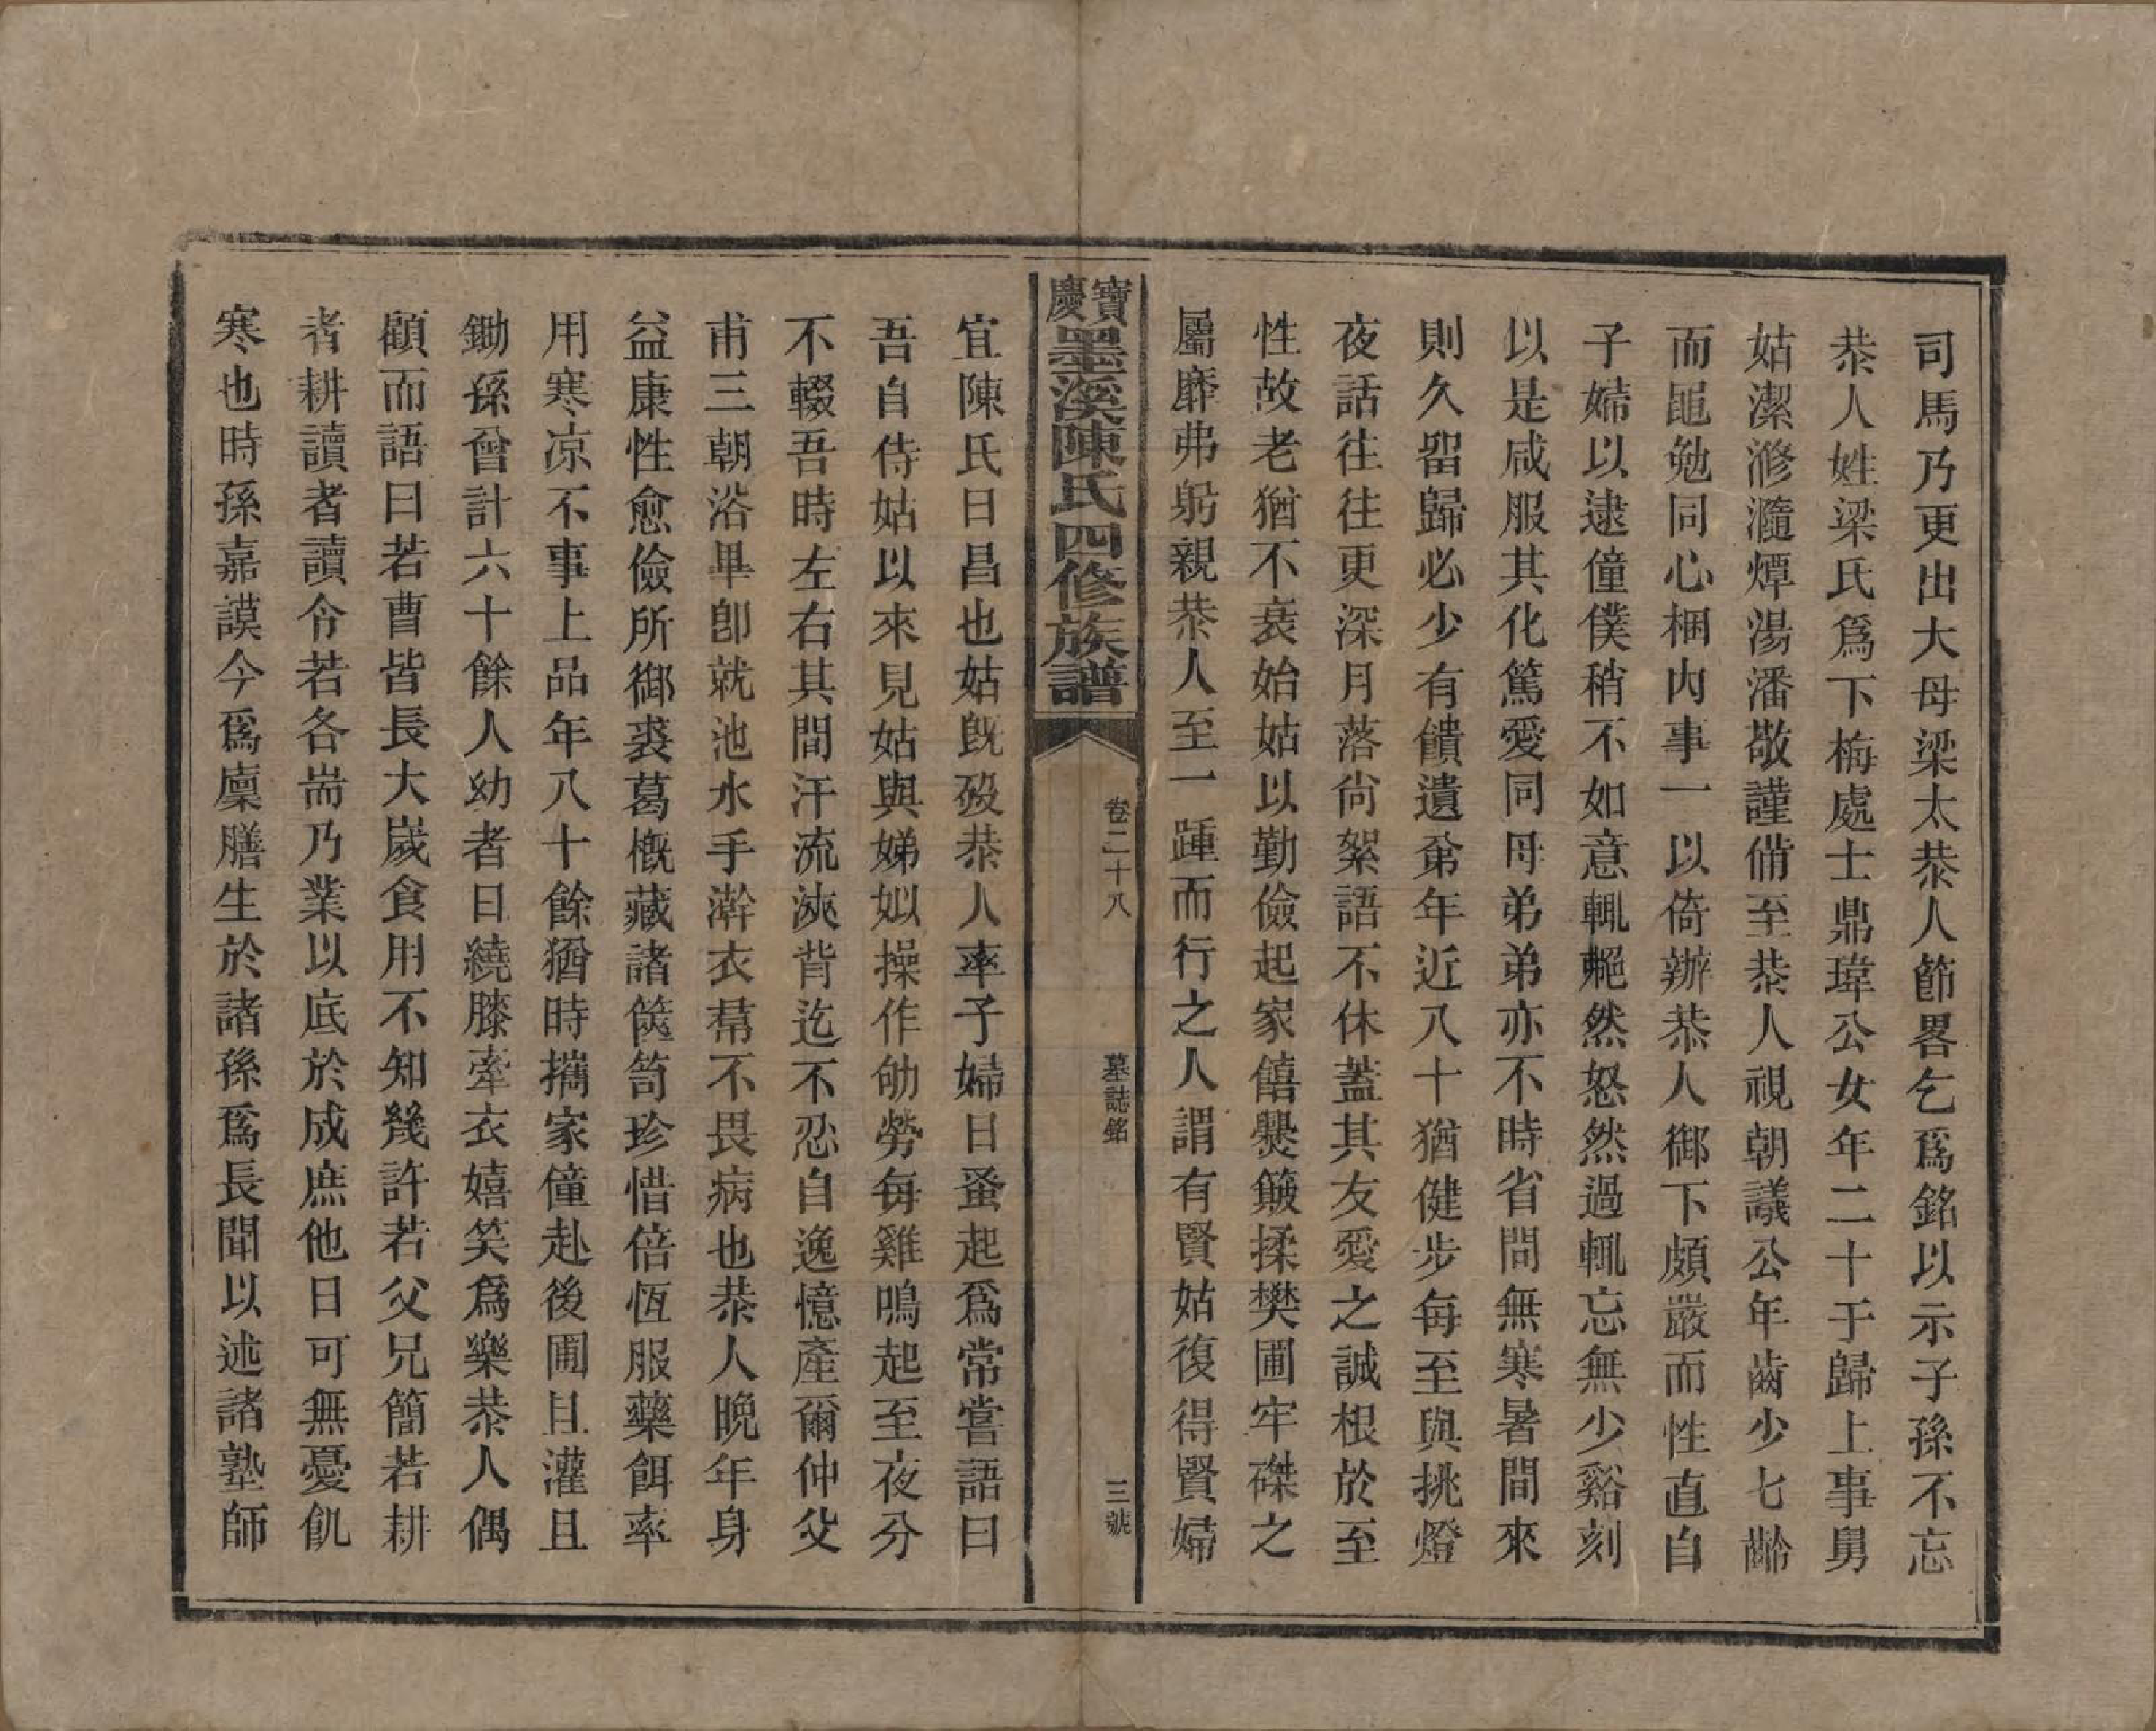 司馬乃更出大母梁太恭人節畧乞爲銘以示子孫不忘
恭人姓梁氏爲下梅處士鼎瑋公女年二十于歸上事舅
姑潔滫瀡燂湯潘敬謹備至恭人視朝議公年齒少七齡
而黽勉同心梱內事一以倚辦恭人御下頗嚴而性直自
子婦以逮僮僕稍不如意輒艴然怒然過輒忘無少谿刻
以是咸服其化篤愛同母弟弟亦不時省問無寒暑間來
則久畱歸必少有饋遺弟年近八十猶健步每至與挑燈
夜話往往更深月落尙絮語不休蓋其友愛之誠根於至
性故老猶不衰始姑以勤儉起家饎爨簸揉樊圃牢磔之
屬靡弗躬親恭人至一踵而行之人謂有賢姑復得賢婦
寶慶墨溪陳氏四修族譜
卷二十八
墓誌銘
三號
宜陳氏日昌也姑旣歿恭人率子婦日蚤起爲常嘗語曰
吾自侍姑以來見姑與娣姒操作劬勞每雞鳴起至夜分
不輟吾時左右其間汗流浹背迄不忍自逸憶產爾仲父
甫三朝浴畢卽就池水手澣衣帬不畏病也恭人晚年身
益康性愈儉所御裘葛槪藏諸篋笥珍惜倍恆服藥餌率
用寒凉不事上品年八十餘猶時攜家僮赴後圃且灌且
鋤孫曾計六十餘人幼者日繞膝牽衣嬉笑爲樂恭人偶
顧而語曰若曹皆長大歲食用不知幾許若父兄簡若耕
者耕讀者讀令若各耑乃業以底於成庶他日可無憂飢
寒也時孫嘉謨今爲廩膳生於諸孫爲長聞以述諸塾師